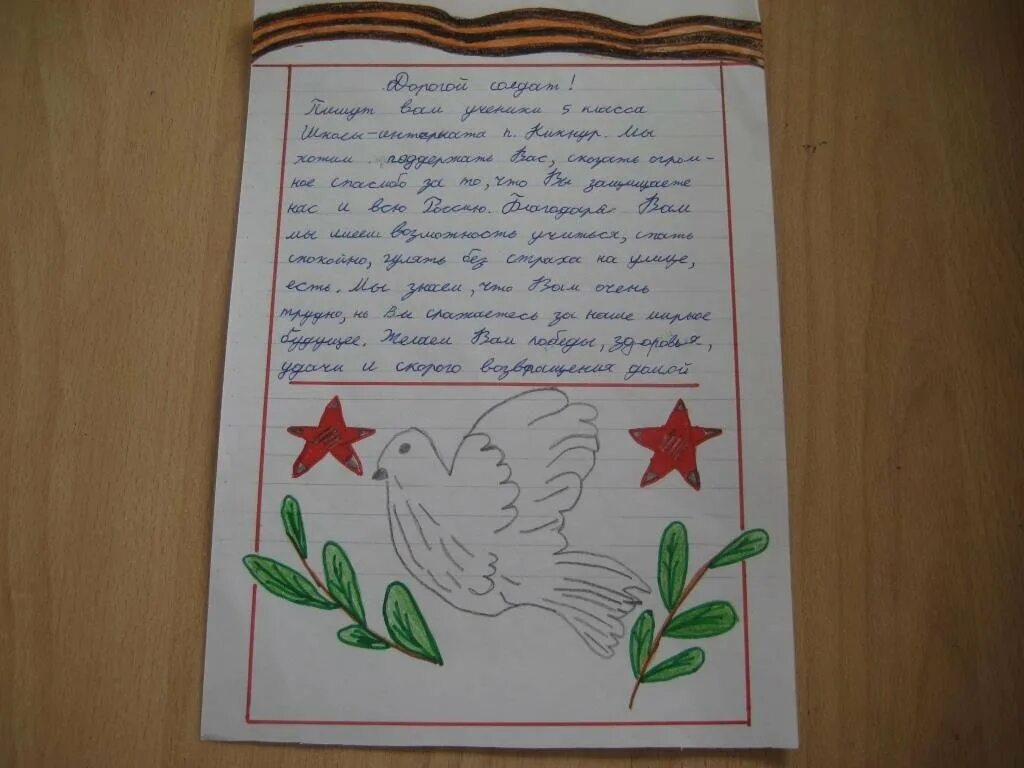 Дорогой солдат!
Пишут вам ученики 5 класса
Школы-интерната п. Кикнур. Мы
хотим поддержать Вас, сказать огром-
ное спасибо за то, что Вы защищаете
нас и всю Россию. Благодаря Вам
мы имеем возможность учиться, спать
спокойно, гулять без страха на улице,
есть. Мы знаем, что Вам очень
трудно, но Вы сражаетесь за наше мирное
будущее. Желаем Вам победы, здоровья,
удачи и скорого возвращения домой